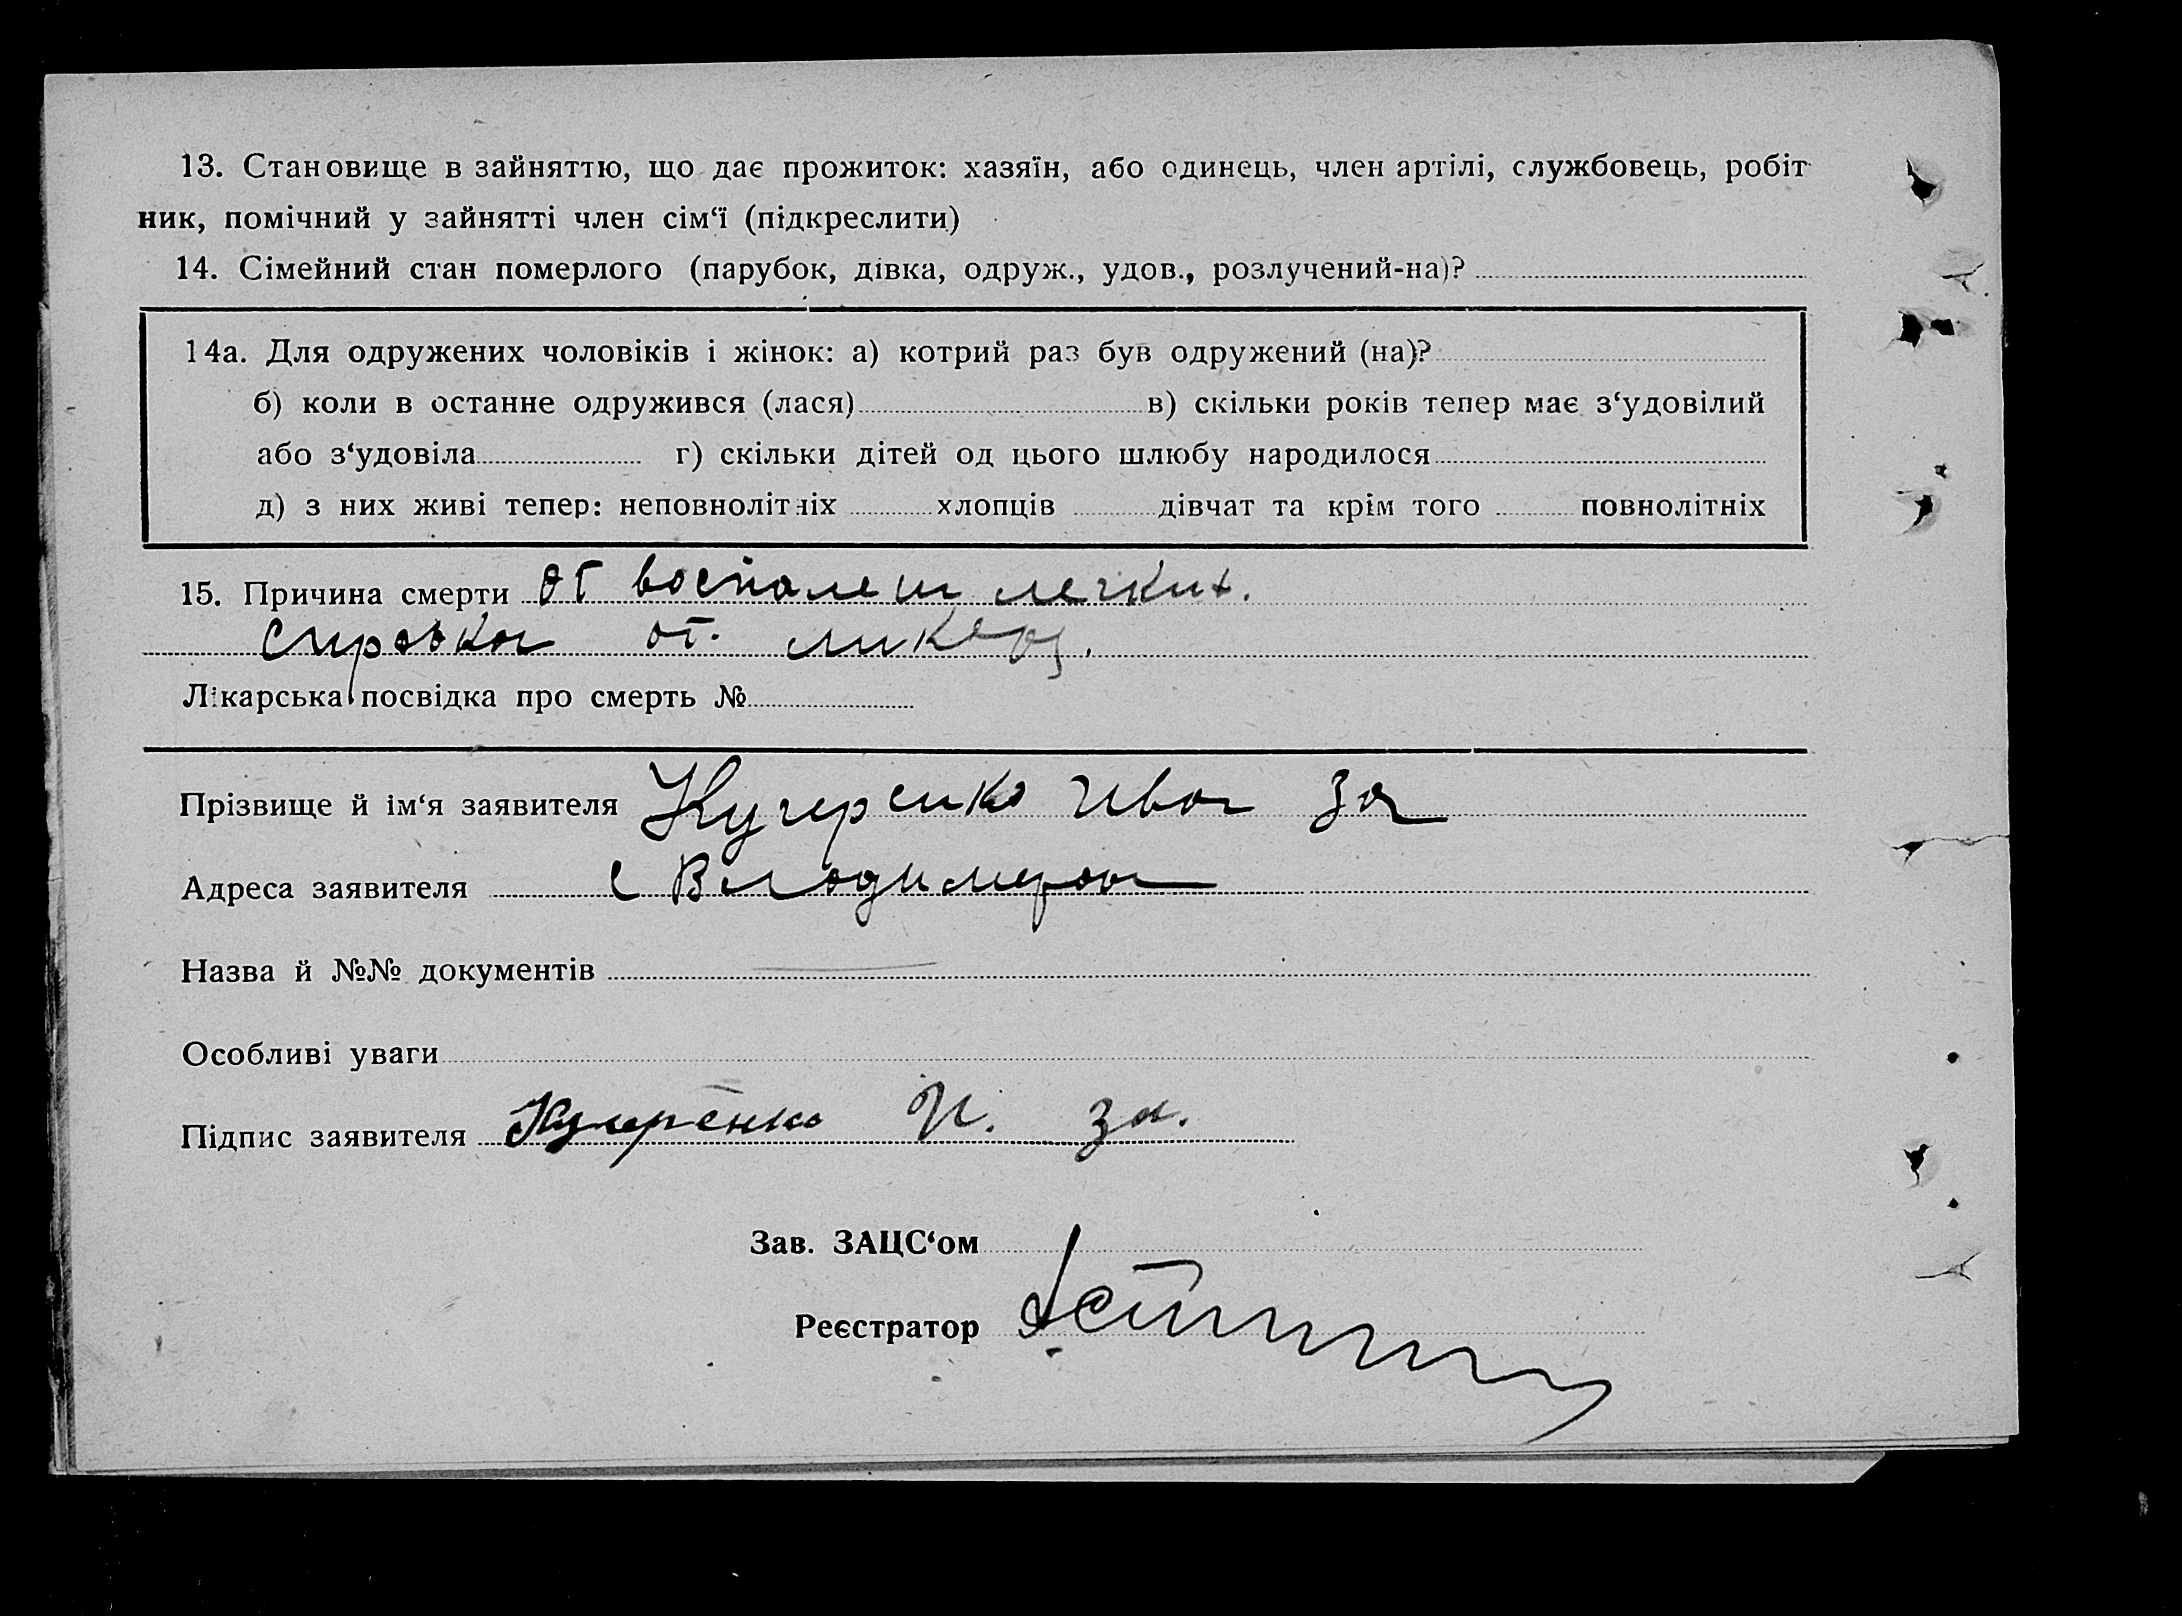 13. Становище в зайняттю, що дає прожиток: хазяїн, або одинець, член артілі, службовець, робіт
ник, помічний у зайнятті член сім‘ї (підкреслити)
14. Сімейний стан померлого (парубок, дівка, одруж., удов., розлучений-на)?
14а. Для одружених чоловіків і жінок: а) котрий раз був одружений (на)?
б) коли в останне одружився (лася) в) скільки років тепер має з‘удовілий
або з‘удовіла г) скільки дітей од цього шлюбу народилося
д) з них живі тепер: неповнолітніх хлопців дівчат та крім того повнолітніх
15. Причина смерти от воспалени легких.
справка от
Лікарська посвідка про смерть №
Прізвище й ім‘я заявителя Кучеренко Ива За
Адреса заявителя с Владимеровка
Назва й №№ документів
Особливі уваги
Підпис заявителя Кучеренко И. за.
Зав. ЗАЦС‘ом
Реєстратор